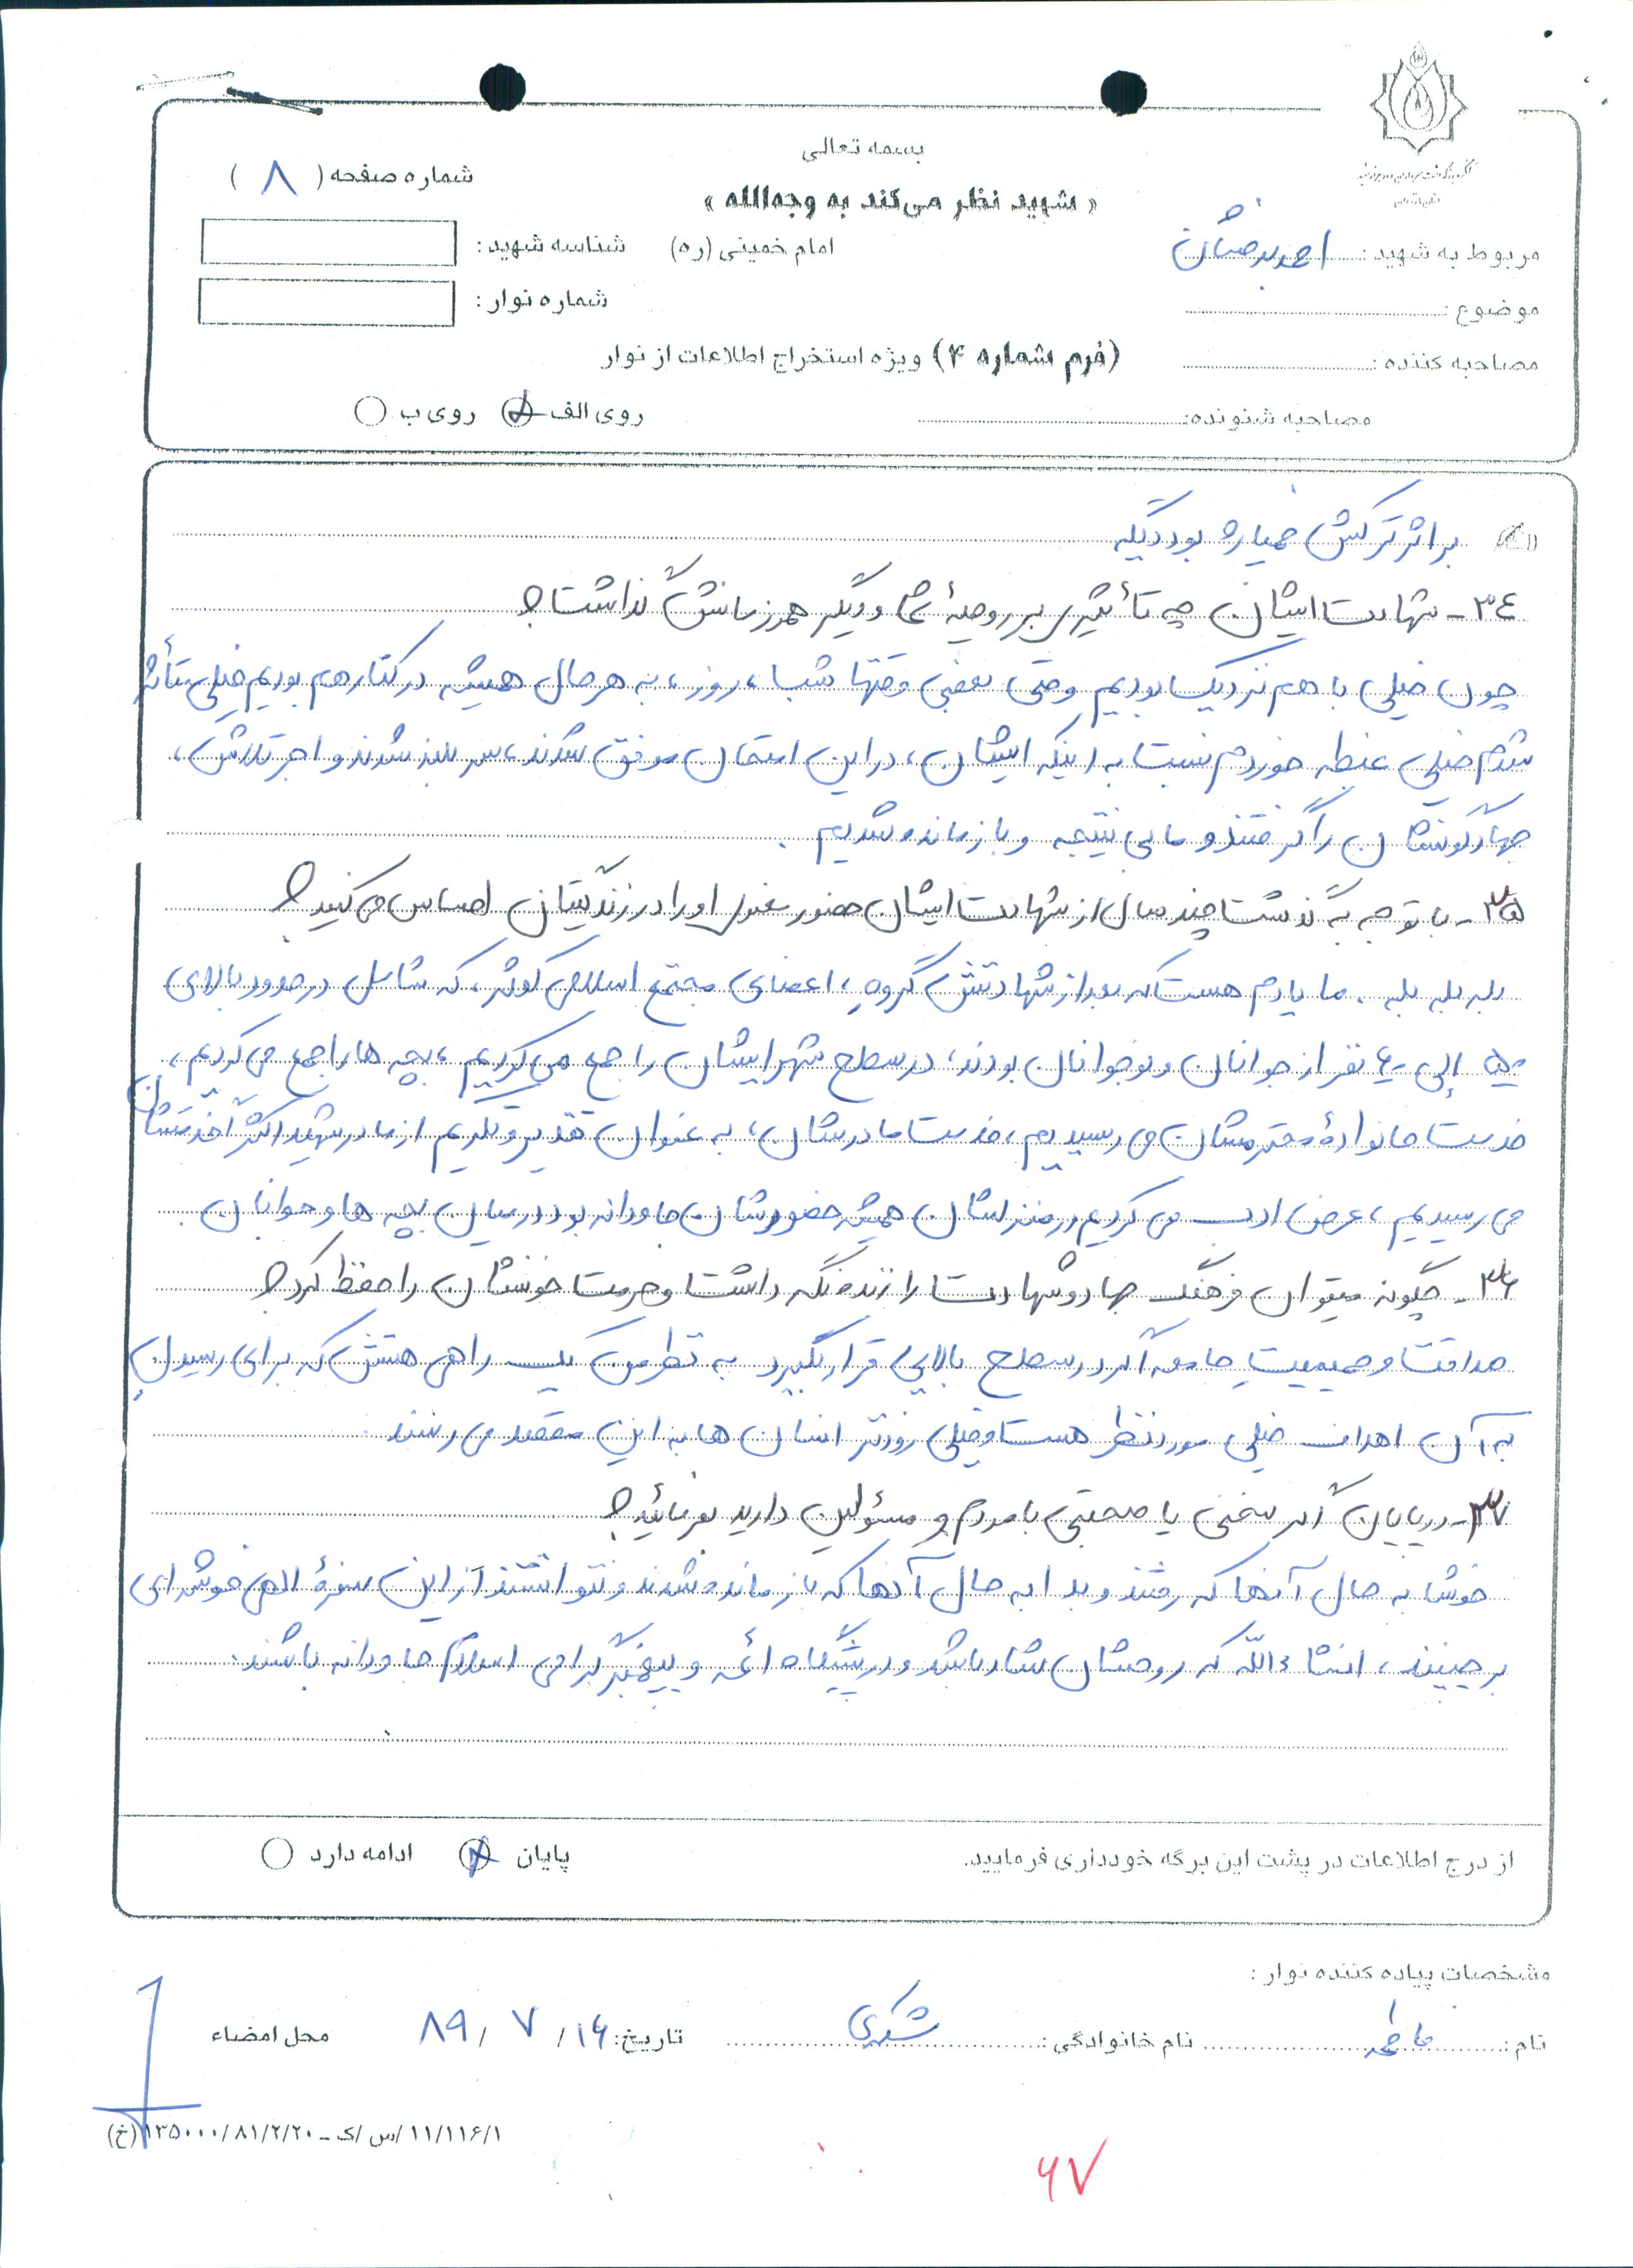 بسمه تعالی
شماره صفحه ( ۸ )
« شهید نظر می‌کند به وجه‌الله »
مربوط به شهید: احمد بدخشان
امام خمینی (ره)
شناسه شهید:
موضوع:
شماره نوار:
مصاحبه کننده:
(فرم شماره ۴) ویژه استخراج اطلاعات از نوار
مصاحبه شونده:
روی الف روی ب
بر اثر ترکش خمپاره بود دیگه
۳۴- شهادت ایشان چه تأثیری بر روحیهٔ شما و دیگر همرزمانش گذاشت؟
چون خیلی با هم نزدیک بودیم وحتی بعضی وقتها شب، روز، به هر حال همیشه در کنار هم بودیم خیلی متأثر
شدم خیلی غبطه خوردم نسبت به اینکه ایشان، در این امتحان موفق شدند، سربلند شدند و اجر تلاش،
جهاد گونشان را گرفتند و ما بی نتیجه و بازمانده شدیم.
۳۵- با توجه به گذشت چند سال از شهادت ایشان حضور معنوی او را در زندگیتان احساس می‌کنید؟
بله بله بله. ما یادم هست که بعد از شهادتش گروهِ، اعضای مجتمع اسلامی کوثر، که شامل در حدود بالای
۵۰ إلی ۶۰ نفر از جوانان و نوجوانان بودند، در سطح شهر ایشان را جمع می‌کردیم، بچه ها را جمع می‌کردیم،
خدمت خانوادهٔ محترمشان می رسیدیم، خدمت مادرشان، به عنوان تقدیر و تکریم از مادر شهید اکثراً خدمتشان
می رسیدیم، عرض ادب می کردیم در منزلشان همیشه حضورشان جاودانه بود در میان بچه ها و جوانان.
۳۶- چگونه میتوان فرهنگ جهاد و شهادت را زنده نگه داشت و حرمت خونشان را حفظ کرد؟
صداقت و صمیمیتِ جامعه اگر در سطح بالایی قرار بگیرد به نظر من یک راهی هستش که برای رسیدن
به آن اهداف خیلی مورد نظر هست و خیلی زودتر انسان ها به این مقصد می رسند.
۳۷- در پایان اگر سخنی یا صحبتی با مردم و مسئولین دارید بفرمائید؟
خوشا به حال آنها که رفتند و بدا به حال آنها که بازمانده شدند و نتوانستند از این سفرهٔ الهی خوشه‌ای
برچینند، انشاءالله که روحشان شاد باشد و در پیشگاه ائمه و پیغمبر گرامی اسلام جاودانه باشند.
از درج اطلاعات در پشت این برگه خودداری فرمایید.
پایان ادامه دارد
مشخصات پیاده کننده نوار:
نام: فاطمه نام خانوادگی: شکری تاریخ: ۱۶/ ۷ / ۸۹ محل امضاء
۱۱/۱۱۶/۱ /س /ک - ۸۱/۲/۲۰/ ۱۳۵۰۰۰ (خ)
۶۷